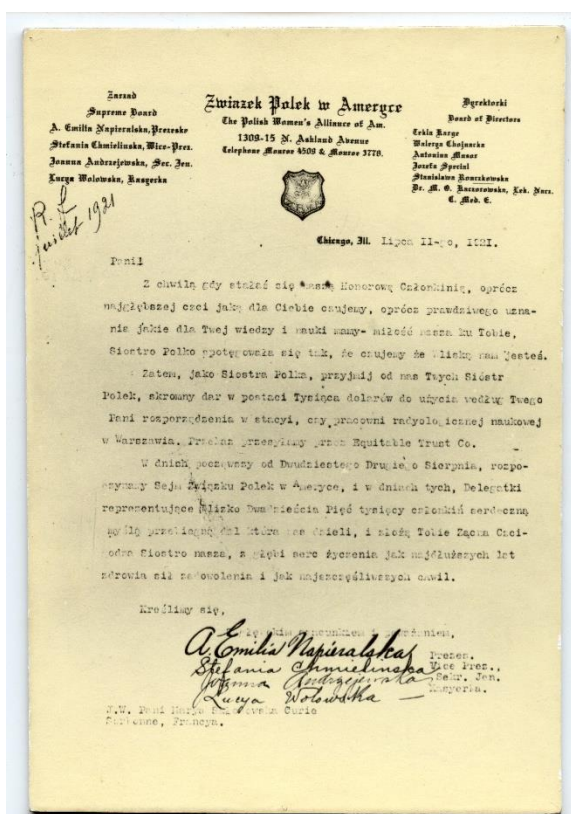 Zarzad
Supreme Board
A. Emilia Napieralska, Prezeska
Stefania Chmielinska, Wice-Prez.
Joanna Andrzejewska, Sec. Jen.
Lucya Wolowska, Kasyerka
Zwiazek Polek w Ameryce
The Polish Women's Alliance of Am.
1309-15 N. Ashland Avenue
Telephone Monroe 4509 & Monroe 3778.
Dyrektorki
Board of Directors
Tekla Karge
Walerya Chojnacka
Antonina Mazor
Jozefa Special
Stanislawa Romczkowska
Dr. M. O. Kaczorowska, Lek. Nacz.
C. Med. E.
R. L
juillet 1921
Chicago, Ill. Lipca 11-go, 1921.
Pani!
Z chwilą gdy stałaś się naszą Honorową Członkinią, oprócz
najgłębszej czci jaką dla Ciebie czujemy, oprócz prawdziwego uzna-
nia jakie dla Twej wiedzy i nauki mamy- miłość nasza ku Tobie,
Siostro Polko spotęgowała się tak, że czujemy że bliską nam jesteś.
Zatem, jako Siostra Polka, przyjmij od nas Twych Sióstr
Polek, skromny dar w postaci Tysiąca dolarów do użycia według Twego
Pani rozporządzenia w stacyi, czy pracowni radyologicznej naukowej
w Warszawie. Przekaz przesyłamy przez Equitable Trust Co.
W dniach począwszy od Dwudziestego Drugiego Sierpnia, rozpo-
czynamy Sejm Związku Polek w Ameryce, i w dniach tych, Delegatki
reprezentujące blizko Dwadzieścia Pięć tysięcy członkiń serdeczną
myślą przebiegną dal która nas dzieli, i złożą Tobie Zacna Czci-
godna Siostro nasza, z głębi serc życzenia jak najdłuższych lat
zdrowia sił zadowolenia i jak najszczęśliwszych chwil.
Kreślimy się,
szacunkiem i poważaniem,
A. Emilia Napieralska Prezes.
Stefania Chmielinska Vice Prez.,
Joanna Andrzejewska Sekr. Jen.
Lucya Wolowska Kasyerka.
J.W. Pani Marya Skłodowska Curie
Sorbonne, Francya.